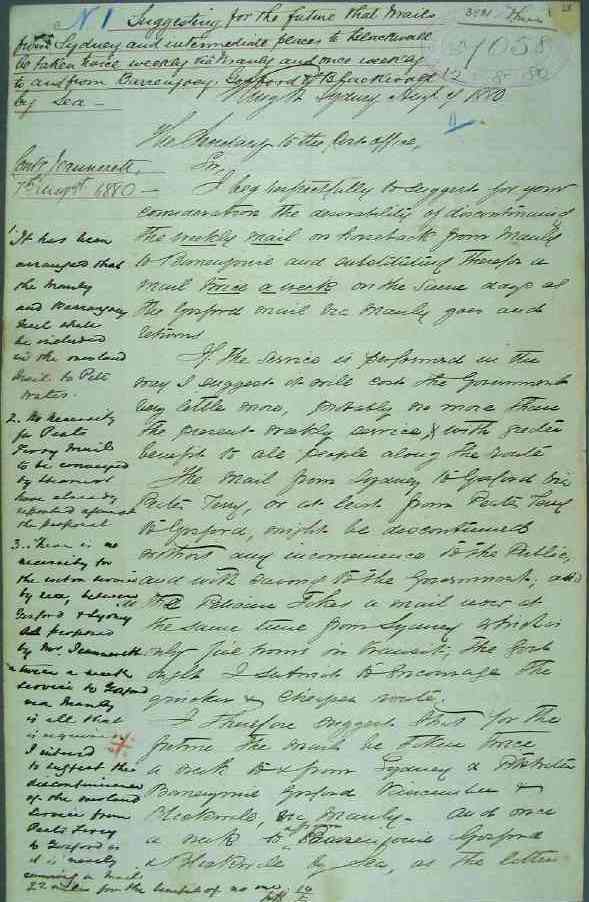 No 1 Suggesting for the future that Mails
from Sydney and intermediate places to Blackwall
be taken twice weekly via Manly and once weekly
to and from Barrenjoey, Gosford & Blackwall
by Sea —
3281
28
80/1058
12 8 80
Wharf St Sydney Augt 7 1880
The Secretary to the Post Office,
Sir,
Jeannerett
7th August 1880 —
I beg respectfully to suggest for your
consideration the desirability of discontinuing
the weekly mail on horseback from Manly
to Barrenjoey and substituting therefor a
mail twice a week on the same days as
the Gosford mail via Manly goes and
returns
If the service is performed in the
way I suggest it will cost the Government
very little more, probably no more than
the present weekly service, & with greater
benefit to all people along the route
The Mail from Sydney to Gosford via
Peats Ferry, or at least from Peats Ferry
to Gosford, might be discontinued
without any inconvenience to the Public,
and with saving to the Government; and
the Pelican takes a mail now at
the same time from Sydney which is
only five hours in transit; the Govt
ought I submit to encourage the
quicker & cheaper route.
I therefore suggest that for the
future the mails be taken twice
a week to & from Sydney &
Barrenjoey Gosford Kincumber &
Blackwall, via Manly - and once
a week to & from Barrenjoey Gosford
& Blackwall by Sea, as the letters
1. It has been
arranged that
the Manly
and Barrenjoey
Mail shall
be included
in the overland
Mail to Pitt
Water.
2. No necessity
for Peats
Ferry Mails
to be conveyed
by Steamer
have already
reported against
the proposal
3. There is no
necessity for
the extra service
by sea, between
Gosford & Sydney
as proposed
by Mr Jeannerett
twice a week
service to Gosford
via Manly
is all that
is required
I intend
to suggest the
discontinuance
of the overland
Service from
Peats Ferry
to Gosford as
it is merely
carrying a Mail
22 miles for the benefit of no one.